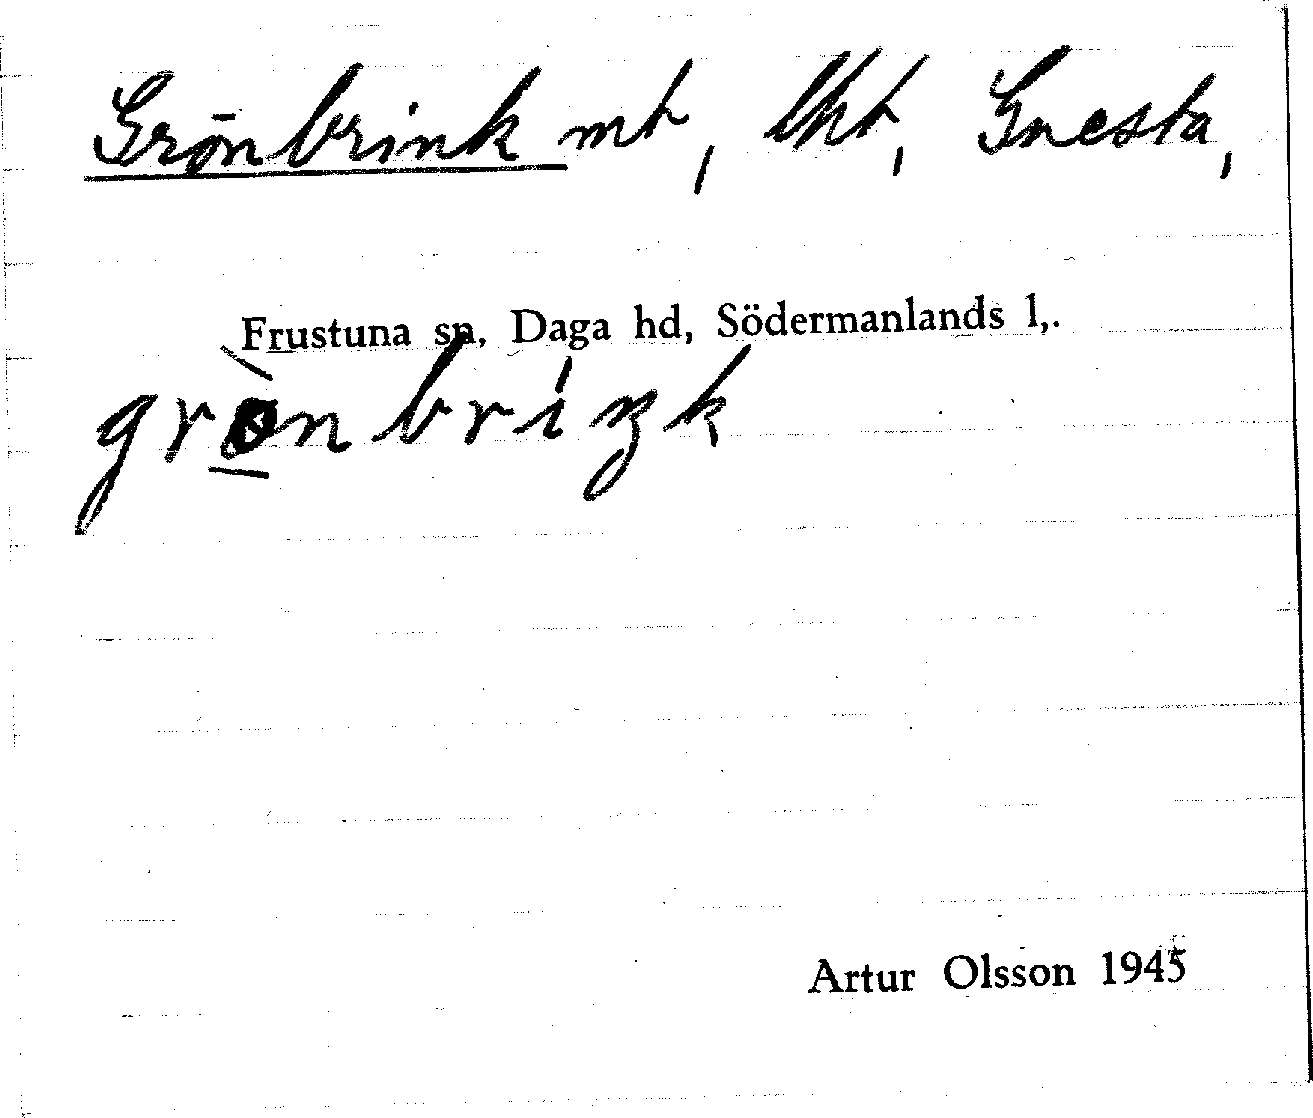 Grönbrink mt, lht, Gnesta,
Frustuna sn, Daga hd, Södermanlands l,.
grònbríŋk
Artur Olsson 1945